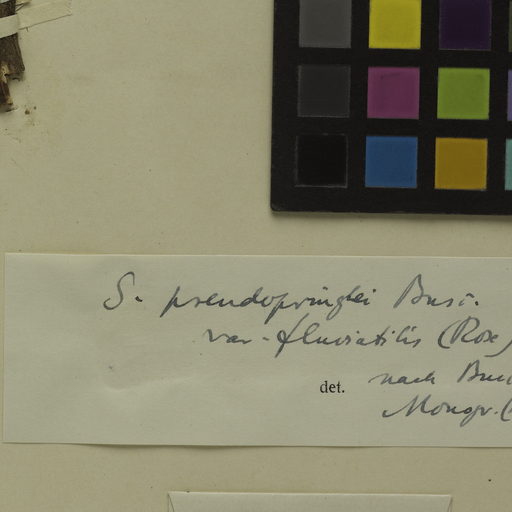 S. pseudopringlei Busc.
var. fluviatilis (Rose)
det. nach Bus
Monogr. (